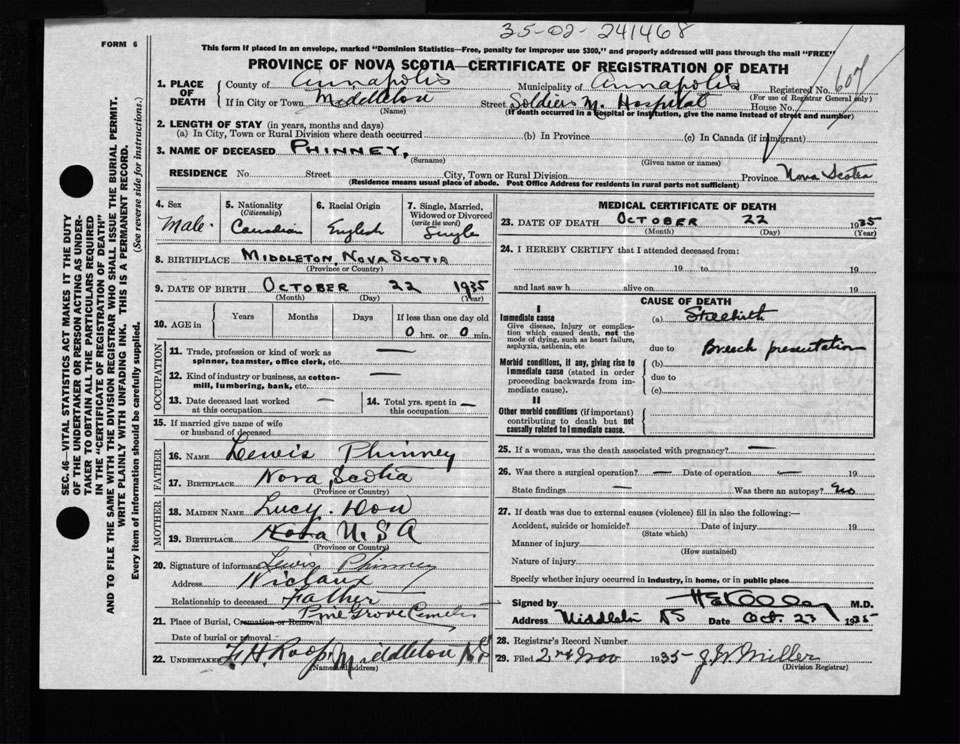 35-02-241468
FORM 6
This form if placed in an envelope, marked "Dominion Statistics—Free, penalty for improper use $300," and properly addressed will pass through the mail "FREE"
PROVINCE OF NOVA SCOTIA—CERTIFICATE OF REGISTRATION OF DEATH
1. PLACE OF DEATH
County of Annapolis Municipality of Annapolis Registered No. 607
(For use of Registrar General only)
If in City or Town Middleton Street Soldiers M. Hospital House No.
(Name) (If death occurred in a hospital or institution, give the name instead of street and number)
2. LENGTH OF STAY (in years, months and days)
(a) In City, Town or Rural Division where death occurred (b) In Province (c) In Canada (if immigrant)
3. NAME OF DECEASED PHINNEY,
(Surname) (Given name or names)
RESIDENCE No. Street City, Town or Rural Division Province Nova Scotia
(Residence means usual place of abode. Post Office Address for residents in rural parts not sufficient)
4. Sex
Male.
5. Nationality
(Citizenship)
Canadian
6. Racial Origin
English
7. Single, Married, Widowed or Divorced
(write the word)
Single
8. BIRTHPLACE MIDDLETON, NOVA SCOTIA
(Province or Country)
9. DATE OF BIRTH OCTOBER 22 1935
(Month) (Day) (Year)
10. AGE in Years Months Days If less than one day old
0 hrs. or 0 min.
OCCUPATION
11. Trade, profession or kind of work as spinner, teamster, office clerk, etc. —
12. Kind of industry or business, as cotton-mill, lumbering, bank, etc. —
13. Date deceased last worked at this occupation — 14. Total yrs. spent in this occupation —
15. If married give name of wife or husband of deceased
FATHER
16. NAME Lewis Phinney
17. BIRTHPLACE Nova Scotia
(Province or Country)
MOTHER
18. MAIDEN NAME Lucy. Dow
19. BIRTHPLACE Nova U.S.A
(Province or Country)
20. Signature of informant Lewis Phinney
Address Nictaux
Relationship to deceased Father
21. Place of Burial, Cremation or Removal Pine Grove Cemetery
Date of burial or removal
22. UNDERTAKER F. H. Roop, Middleton N.S
(Name and address)
MEDICAL CERTIFICATE OF DEATH
23. DATE OF DEATH OCTOBER 22 1935
(Month) (Day) (Year)
24. I HEREBY CERTIFY that I attended deceased from:
19 to 19
and last saw h alive on 19
CAUSE OF DEATH
I
Immediate cause
Give disease, injury or complication which caused death, not the mode of dying, such as heart failure, asphyxia, asthenia, etc.
(a) Stillbirth
due to Breech presentation
Morbid conditions, if any, giving rise to immediate cause (stated in order proceeding backwards from immediate cause).
(b)
due to
(c)
II
Other morbid conditions (if important) contributing to death but not causally related to immediate cause.
25. If a woman, was the death associated with pregnancy? —
26. Was there a surgical operation? — Date of operation — 19
State findings — Was there an autopsy? no
27. If death was due to external causes (violence) fill in also the following:—
Accident, suicide or homicide? Date of injury 19
(State which)
Manner of injury
(How sustained)
Nature of injury
Specify whether injury occurred in industry, in home, or in public place
Signed by M.D.
Address Middleton NS Date Oct. 23 1935
28. Registrar's Record Number
29. Filed 2nd Nov 1935 J W Miller
(Division Registrar)
SEC. 46—VITAL STATISTICS ACT MAKES IT THE DUTY
OF THE UNDERTAKER OR PERSON ACTING AS UNDER-
TAKER TO OBTAIN ALL THE PARTICULARS REQUIRED
IN THE "CERTIFICATE OF REGISTRATION OF DEATH"
AND TO FILE THE SAME WITH THE DIVISION REGISTRAR WHO SHALL ISSUE THE BURIAL PERMIT.
WRITE PLAINLY WITH UNFADING INK. THIS IS A PERMANENT RECORD.
Every item of information should be carefully supplied. (See reverse side for instructions.)